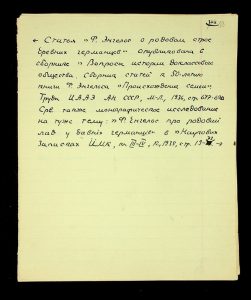 ← Статья "Ф. Энгельс о родовом строе
древних германцев" опубликована в
сборнике "Вопросы истории доклассового
общества. Сборник статей к 50-летию
книги Ф. Энгельса "Происхождение семьи",
Труды ИАЭ АН СССР, М-Л., 1936, стр.
Срв. также монографическое исследование
на ту же тему: "Ф. Енгельс про родовий
лад у давніх германців" в "Наукових
Записках ІІМК, т. III-IV, К, 1935, стр. →